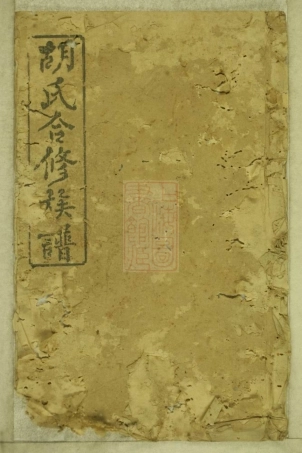 胡氏合修族譜